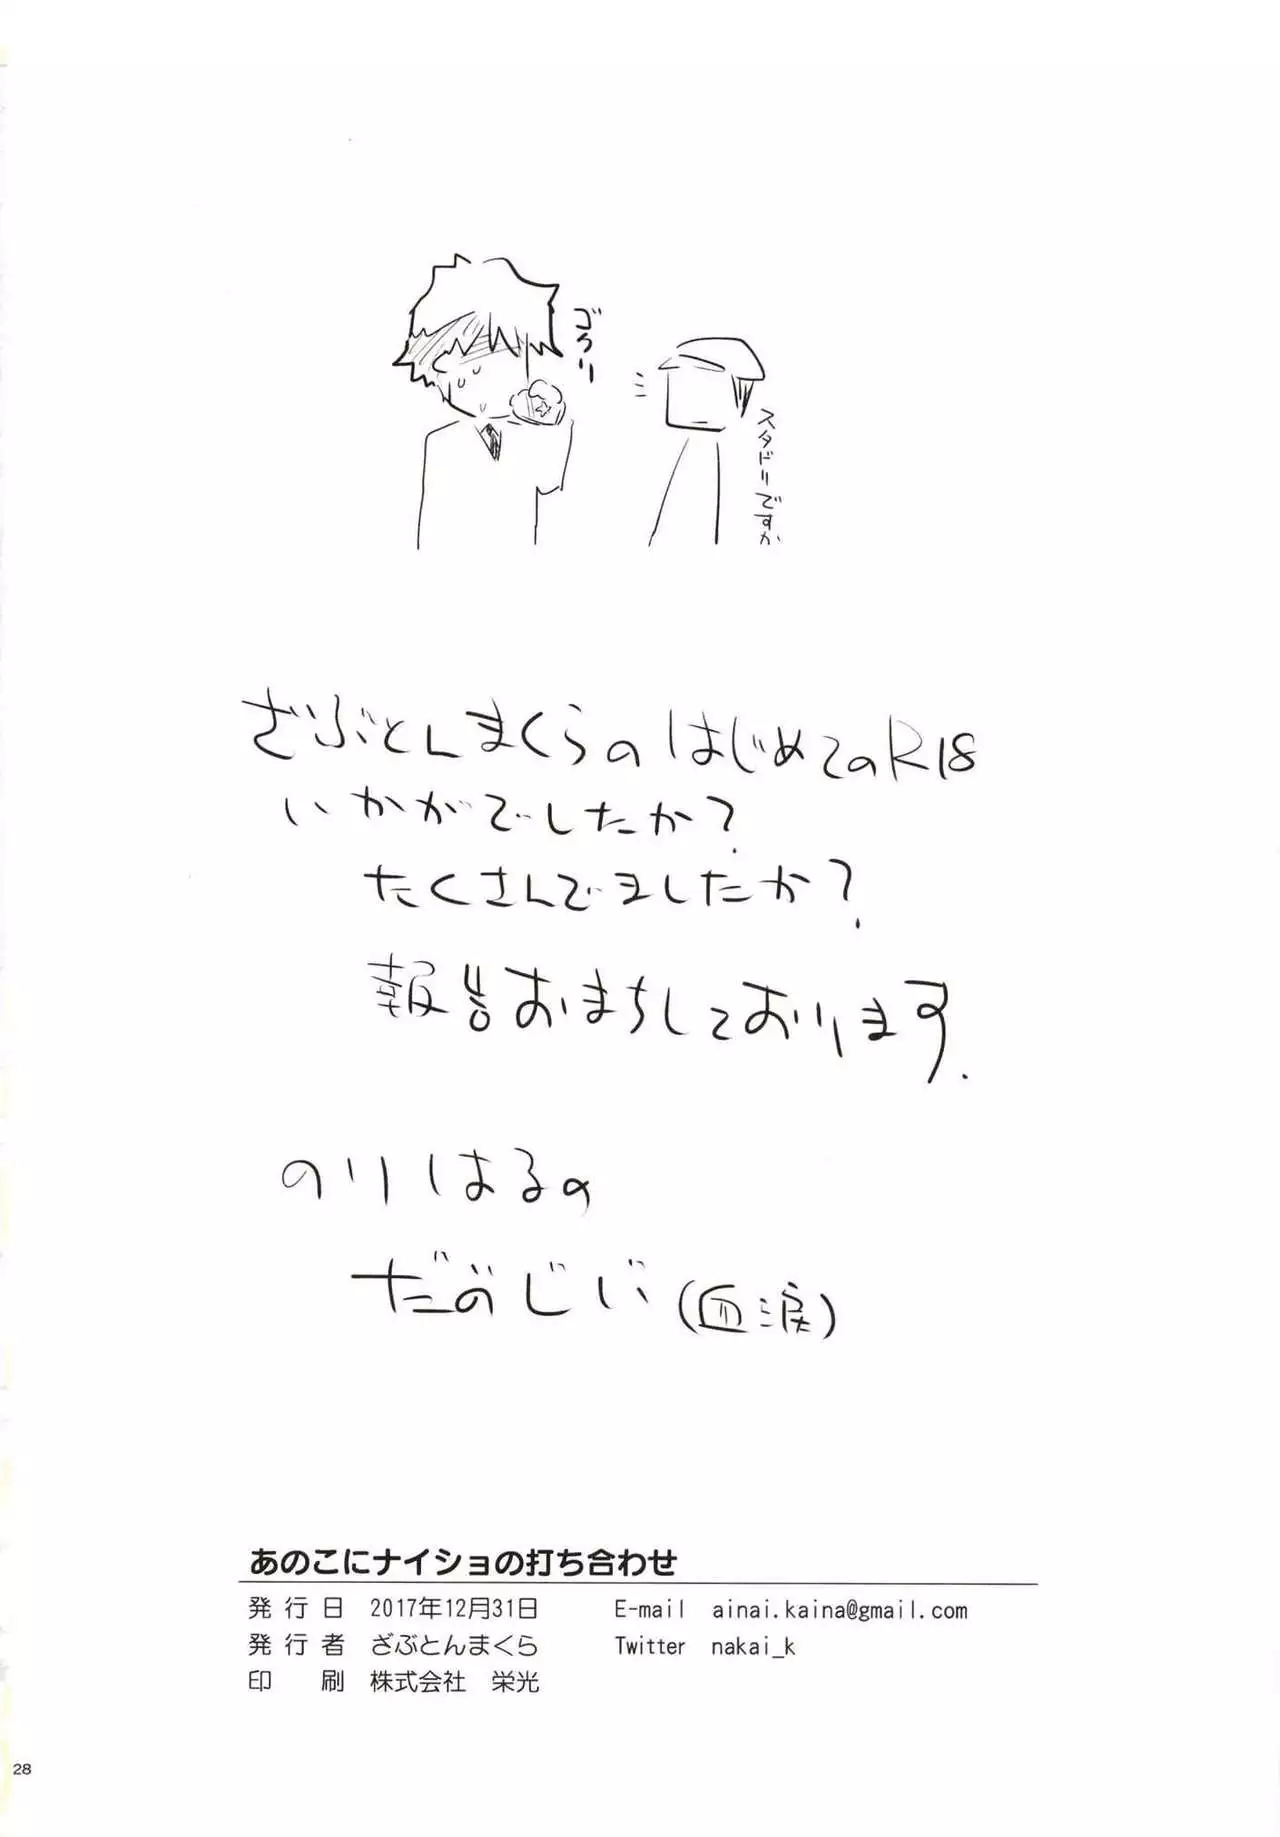 ゴクリ
スタドリですか
ざぶとんまくらのはじめてのR18
いかがでしたか?
たくさんでましたか?
報告おまちしております.
のりはるの
だのじじい(血涙)
あのこにナイショの打ち合わせ
発行日 2017年12月31日 E-mail ainai.kaina@gmail.com
発行者 ざぶとんまくら Twitter nakai_k
印刷 株式会社 栄光
28